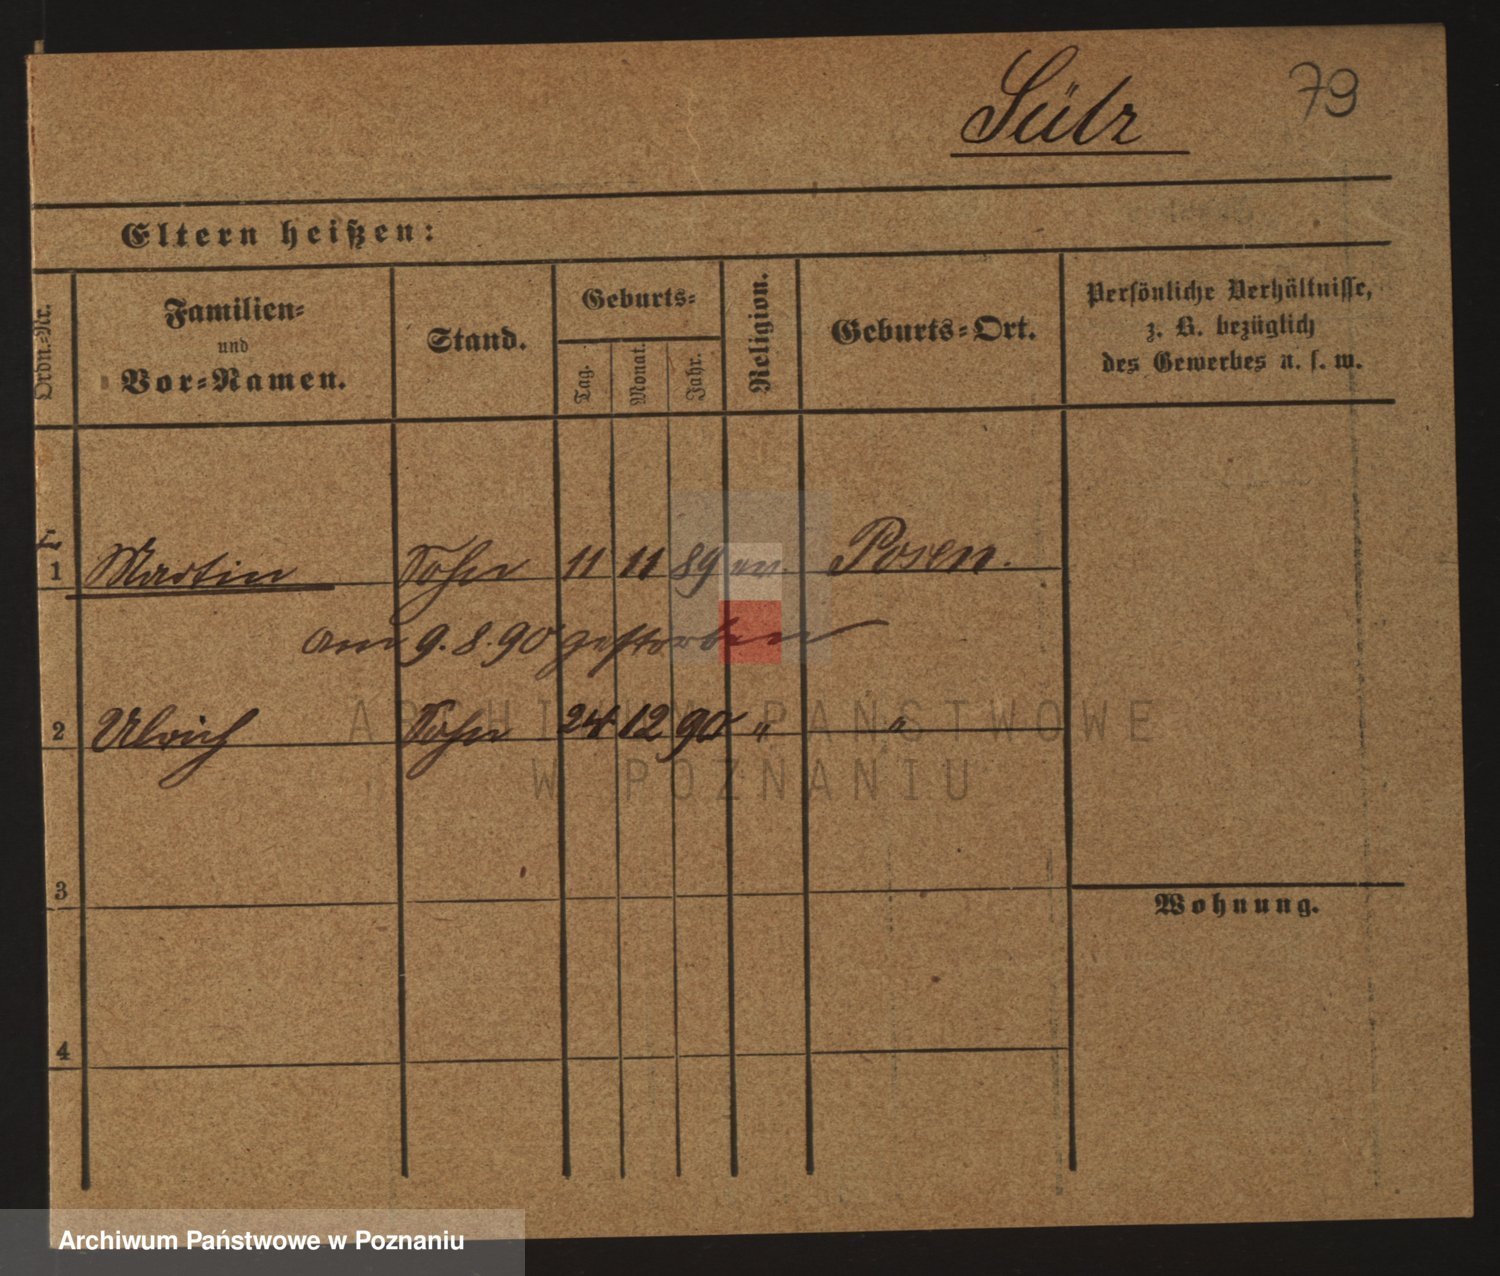 Sülz
79
Eltern heißen:
Ordn.-Nr.
Familien-
und
Vor-Namen.
Stand.
Geburts-
Tag.
Monat.
Jahr.
Religion.
Geburts-Ort.
Persönliche Verhältnisse,
z. B. bezüglich
des Gewerbes u. s. w.
1 Martin Sohn 11 11 89 ev. Posen.
am 9. 8. 90 gestorben
2 Ulrich Sohn 24 12 90 " "
3
4
Wohnung.
ARCHIWUM PAŃSTWOWE
W POZNANIU
Archiwum Państwowe w Poznaniu